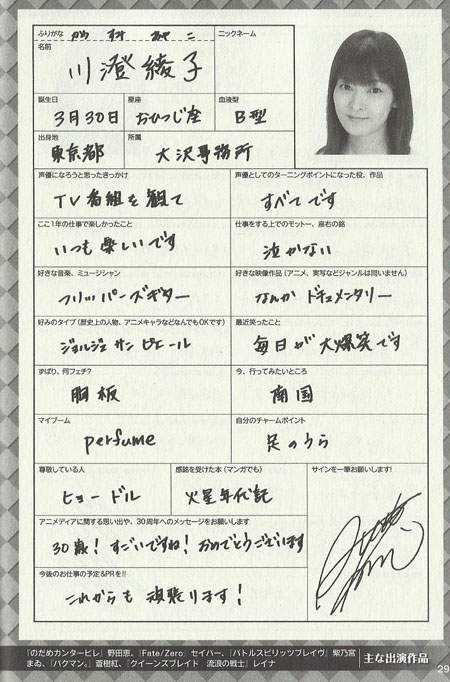 ふりがな かわすみ あやこ
ニックネーム
名前
川澄綾子
誕生日 星座 血液型
3月30日 おひつじ座 B型
出身地 所属
東京都 大沢事務所
声優になろうと思ったきっかけ
TV番組を観て
声優としてのターニングポイントになった役、作品
すべてです
ここ1年の仕事で楽しかったこと
いつも楽しいです
仕事をする上でのモットー、座右の銘
泣かない
好きな音楽、ミュージシャン
フリッパーズギター
好きな映像作品(アニメ、実写などジャンルは問いません)
なんか ドキュメンタリー
好みのタイプ(歴史上の人物、アニメキャラなどなんでもOKです)
ジョルジュ サン ピエール
最近笑ったこと
毎日が大爆笑です
ずばり、何フェチ?
胸板
今、行ってみたいところ
南国
マイブーム
perfume
自分のチャームポイント
足のうら
尊敬している人
ヒョードル
感銘を受けた本(マンガでも)
火星年代記
サインを一筆お願いします!
アニメディアに関する思い出や、30周年へのメッセージをお願いします
30歳!すごいですね!おめでとうございます
今後のお仕事の予定&PRを!!
これからも頑張ります!
『のだめカンタービレ』野田恵、『Fate/Zero』セイバー、『バトルスピリッツブレイヴ』紫乃宮
まゐ、『バクマン。』蒼樹紅、『クイーンズブレイド 流浪の戦士』レイナ
主な出演作品
29